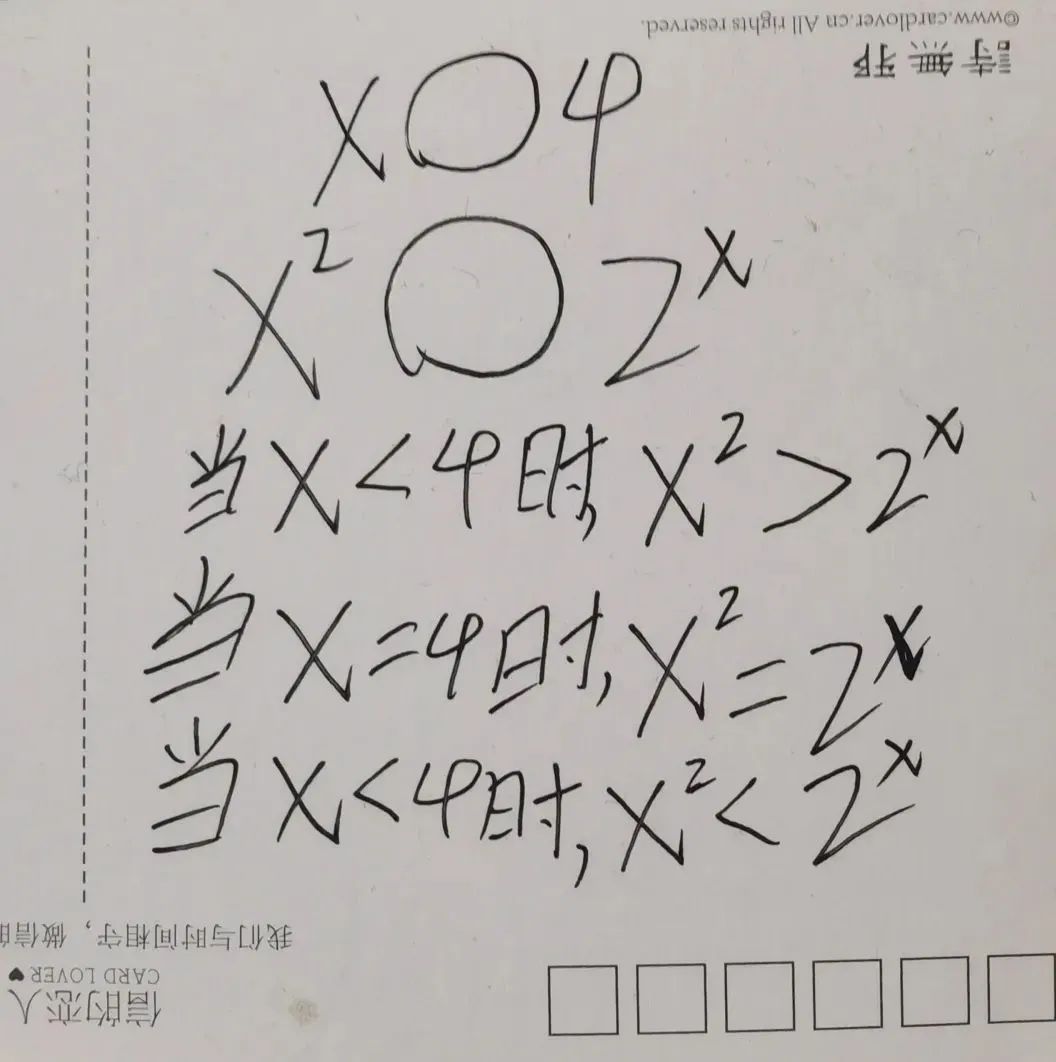 ©www.cardlover.cn All rights reserved.
詩無邪
x○4
x²○2ˣ
当x<4时,x²>2ˣ
当x=4时,x²=2ˣ
当x<4时,x²<2ˣ
我们与时间相守，做信的
CARD LOVER♥
信的恋人